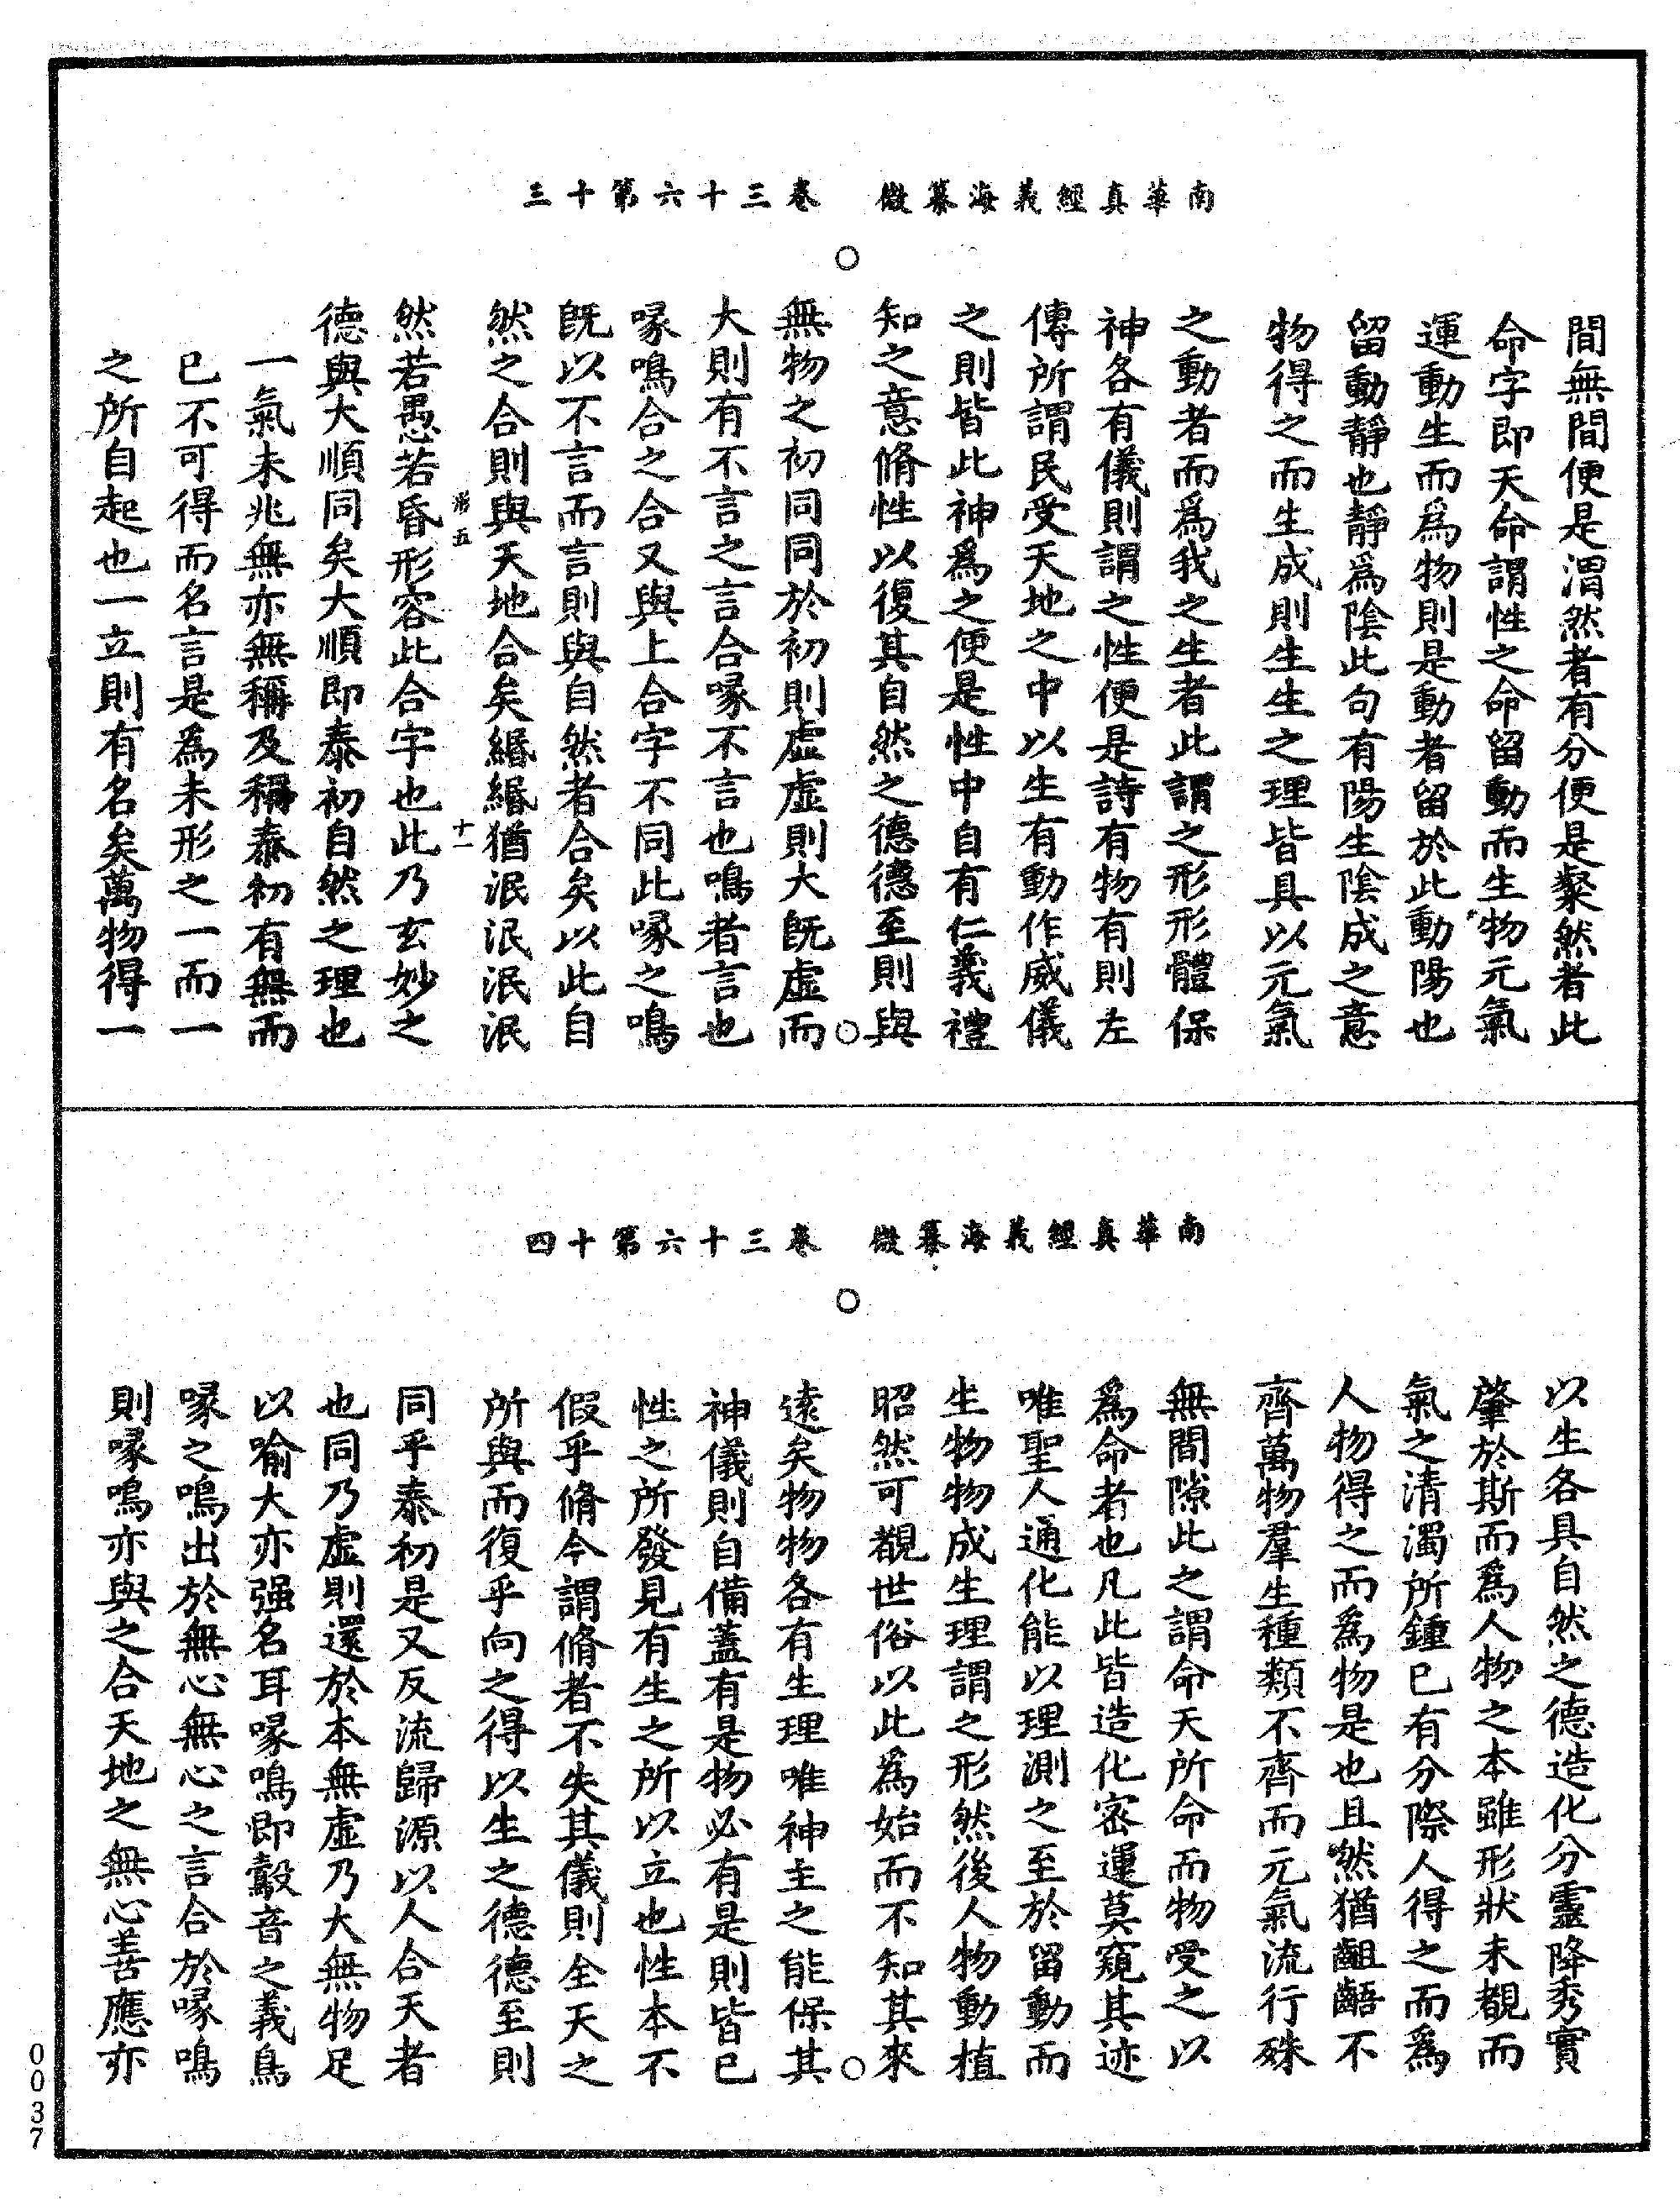 南華真經義海纂微　卷三十六第十三
間無間便是渭然者有分便是粲然者此
命字即天命謂性之命留動而生物元氣
運動生而爲物則是動者留於此動陽也
留動靜也靜爲陰此句有陽生陰成之意
物得之而生成則生生之理皆具以元氣
之動者而爲我之生者此謂之形形體保
神各有儀則謂之性便是詩有物有則左
傳所謂民受天地之中以生有動作威儀
之則皆此神爲之便是性中自有仁義禮
知之意脩性以復其自然之德德至則與
無物之初同同於初則虛虛則大既虛而
大則有不言之言合喙不言也鳴者言也
喙鳴合之合又與上合字不同此喙之鳴
既以不言而言則與自然者合矣以此自
然之合則與天地合矣緡緡猶泯泯泯
五
十一
然若愚若昏形容此合字也此乃玄妙之
德與大順同矣大順即泰初自然之理也
一氣未兆無亦無稱及稱泰初有無而
已不可得而名言是爲未形之一而一
之所自起也一立則有名矣萬物得一
南華真經義海纂微　卷三十六第十四
以生各具自然之德造化分靈降秀實
肇於斯而爲人物之本雖形狀未覩而
氣之清濁所鍾已有分際人得之而爲
人物得之而爲物是也且然猶齟齬不
齊萬物羣生種類不齊而元氣流行殊
無間隙此之謂命天所命而物受之以
爲命者也凡此皆造化密運莫窺其迹
唯聖人通化能以理測之至於留動而
生物物成生理謂之形然後人物動植
昭然可覩世俗以此爲始而不知其來
遠矣物物各有生理唯神主之能保其
神儀則自備蓋有是物必有是則皆已
性之所發見有生之所以立也性本不
假乎脩今謂脩者不失其儀則全天之
所與而復乎向之得以生之德德至則
同乎泰初是又反流歸源以人合天者
也同乃虛則還於本無虛乃大無物足
以喻大亦强名耳喙鳴即鷇音之義鳥
喙之鳴出於無心無心之言合於喙鳴
則喙鳴亦與之合天地之無心善應亦
0037